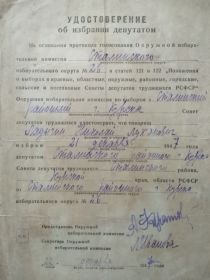 УДОСТОВЕРЕНИЕ
об избрании депутатом
На основании протокола голосования Окружной избира-
тельной комиссии Сталинского
избирательного округа № 28 и статей 121 и 122 "Положения
о выборах в краевые, областные, окружные, районные, городские,
сельские и поселковые Советы депутатов трудящихся РСФСР"
Окружная избирательная комиссия по выборам в Сталинский
районный г. Курска Совет
депутатов трудящихся удостоверяет, что товарищ
Николай
избран 21 декабря 7 года
депутатом Сталинского районного г. Курска
Совета депутатов трудящихся
Курской края, области РСФСР
от Сталинского районного г. Курска
избирательного округа № 28
Председатель Окружной
избирательной комиссии
Секретарь Окружной
избирательной комиссии
Иванова
декабря